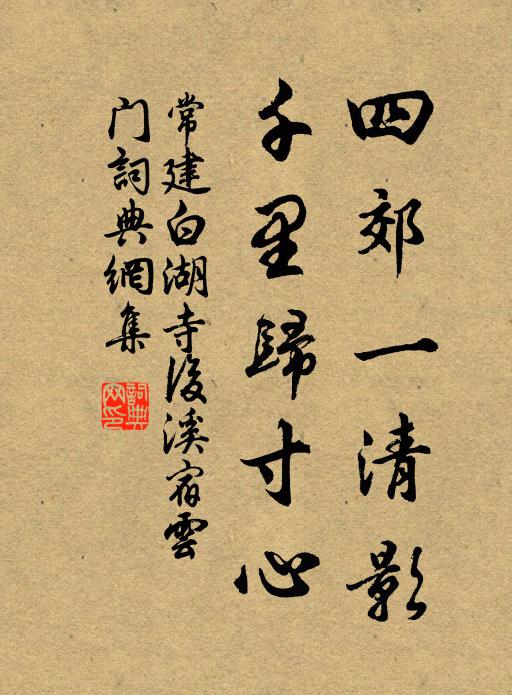 四郊一清影
千里歸寸心
常建白湖寺後溪宿雲
門詞典網集
詞典网印